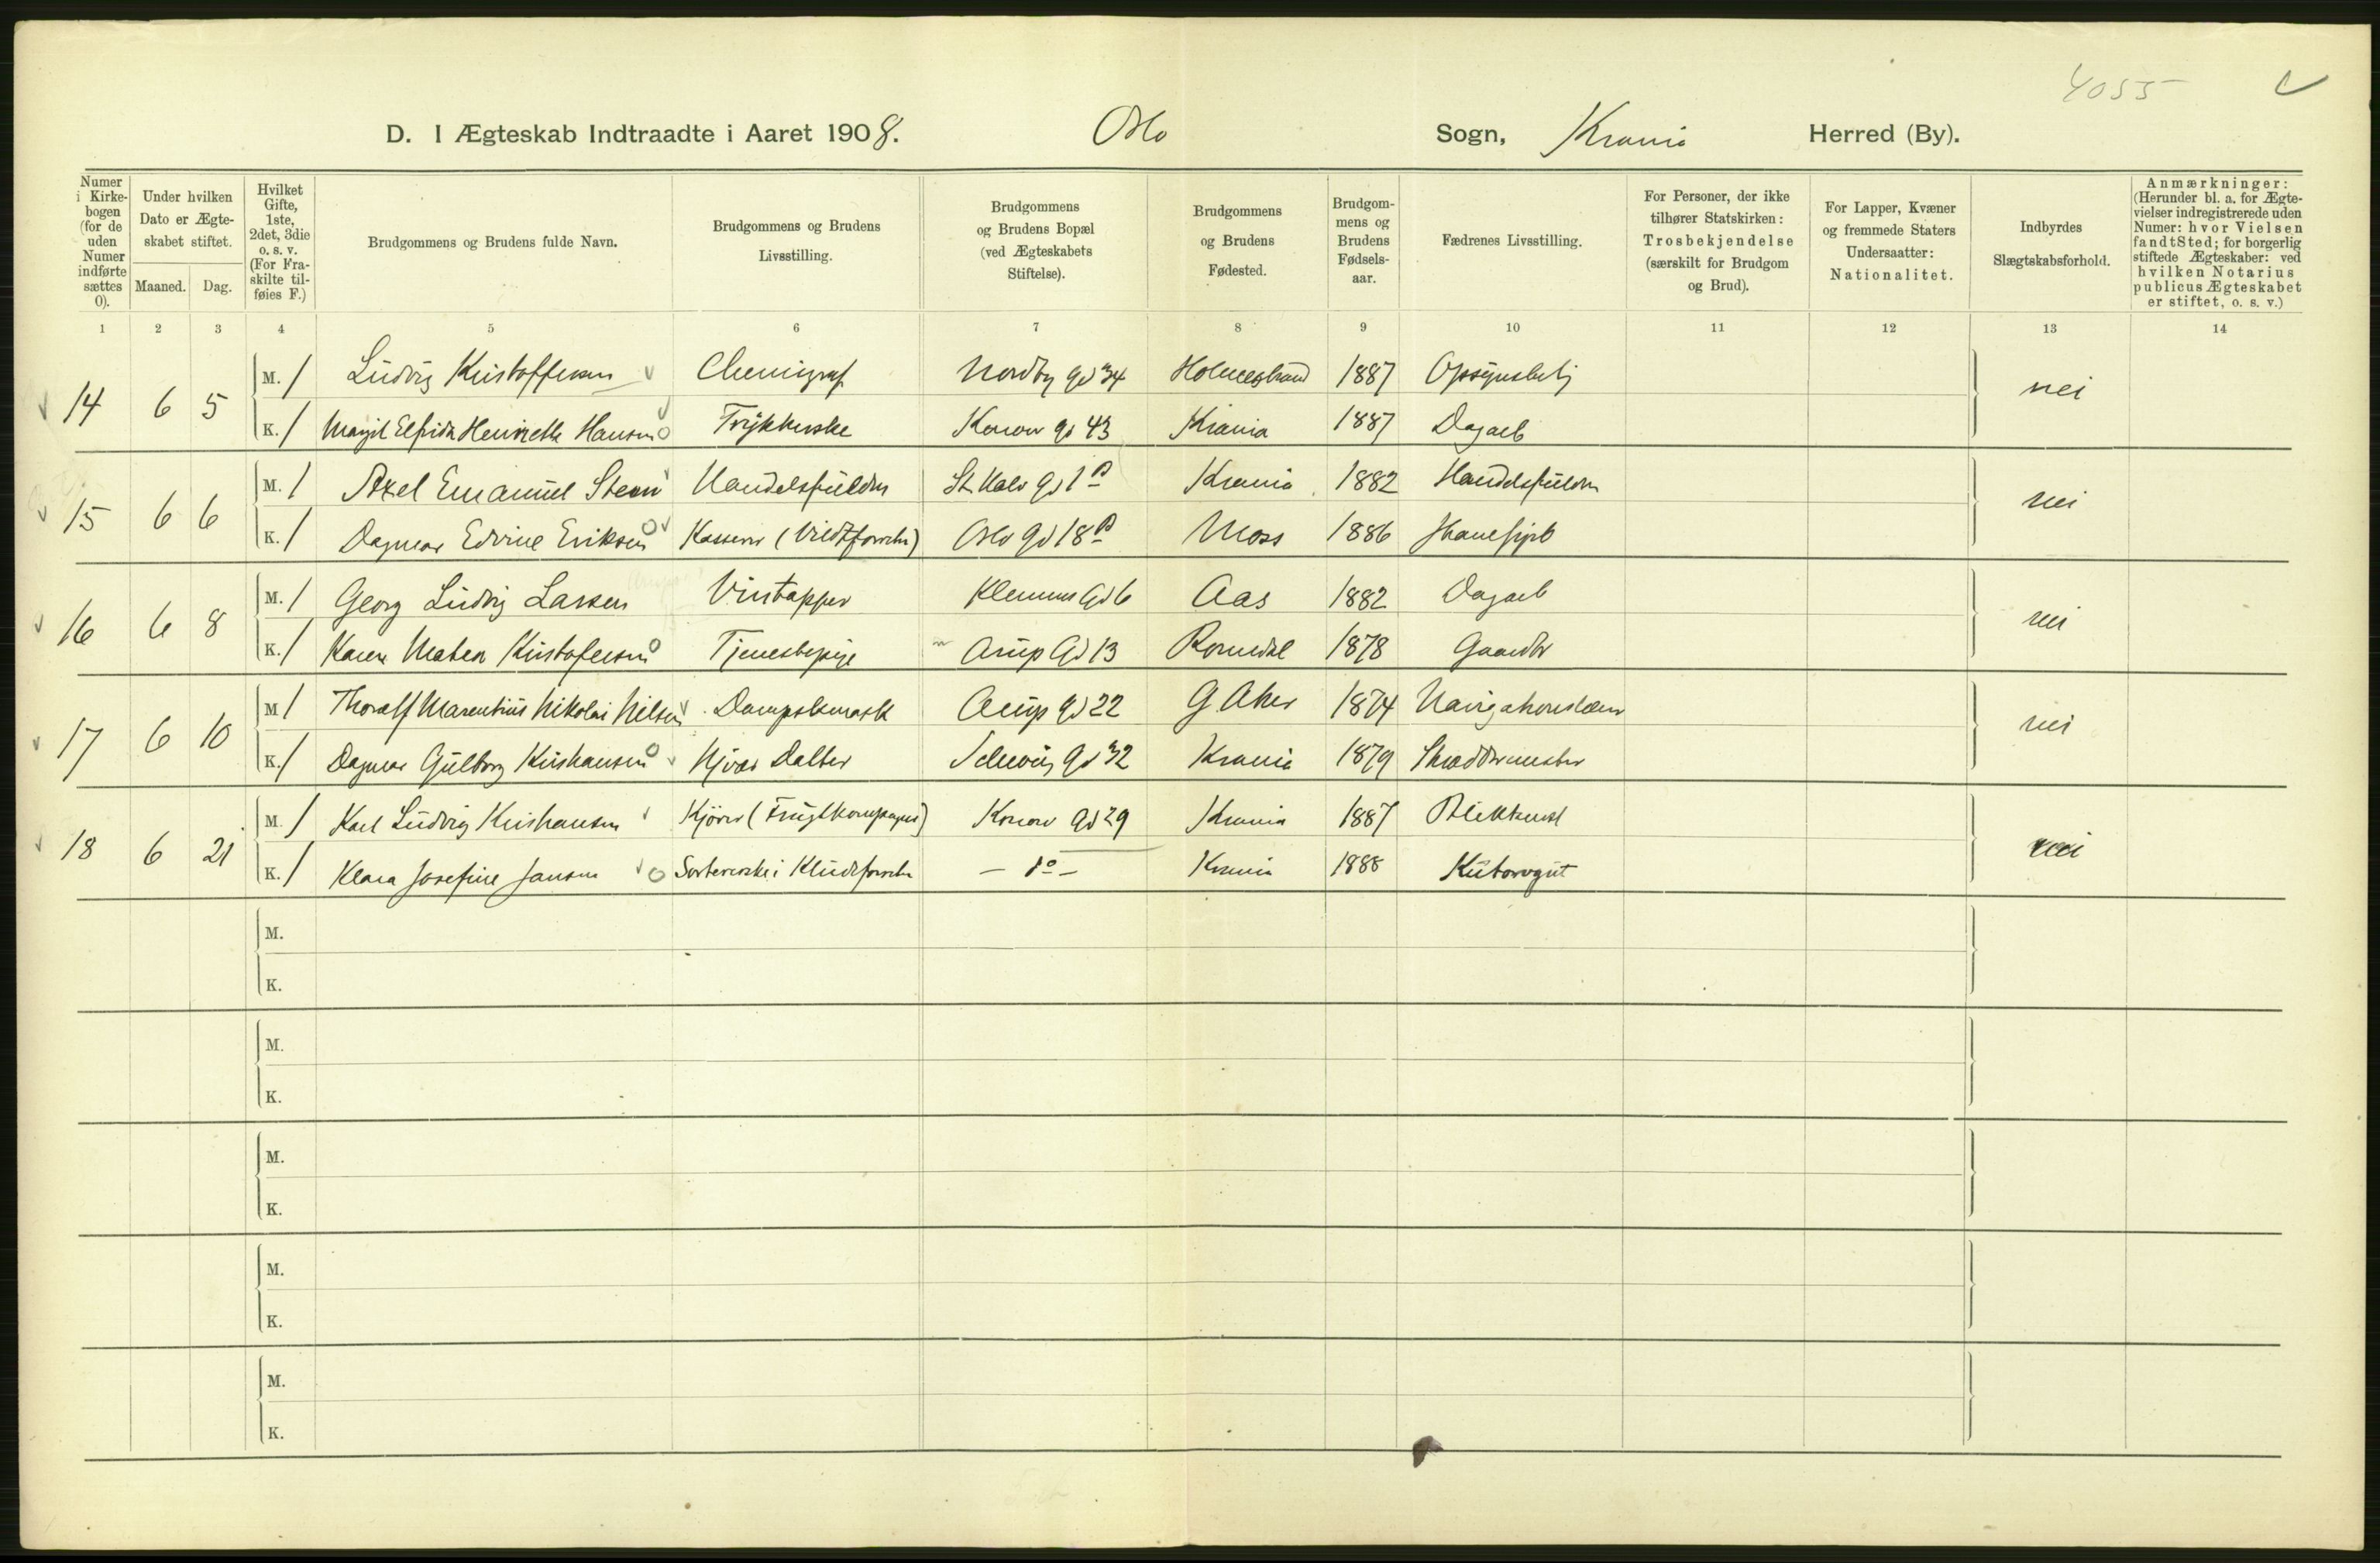 4055
D. I Ægteskab Indtraadte i Aaret 1908. Oslo Sogn, Krania Herred (By).
Numer i Kirke-bogen (for de uden Numer indførte sættes 0).
Under hvilken Dato er Ægte-skabet stiftet.
Maaned. Dag.
Hvilket Gifte, 1ste, 2det, 3die o. s. v. (For Fra-skilte til-føies F.)
Brudgommens og Brudens fulde Navn.
Brudgommens og Brudens Livsstilling.
Brudgommens og Brudens Bopæl (ved Ægteskabets Stiftelse).
Brudgommens og Brudens Fødested.
Brudgom-mens og Brudens Fødsels-aar.
Fædrenes Livsstilling.
For Personer, der ikke tilhører Statskirken: Trosbekjendelse (særskilt for Brudgom og Brud).
For Lapper, Kvæner og fremmede Staters Undersaatter: Nationalitet.
Indbyrdes Slægtskabsforhold.
Anmærkninger: (Herunder bl. a. for Ægte-vielser indregistrerede uden Numer: hvor Vielsen fandt Sted; for borgerlig stiftede Ægteskaber: ved hvilken Notarius publicus Ægteskabet er stiftet, o. s. v.)
1 2 3 4 5 6 7 8 9 10 11 12 13 14
14 6 5 M. 1 Ludvig Kristoffersen Chemigraf Nordby gd 34 Holmestrand 1887 Opsynsbetj nei
K. 1 Margit Elfrida Henriette Hansen Trykkerske Konow gd 43 Krania 1887 Dagarb
15 6 6 M. 1 Axel Emanuel Steen Handelsfuldm St. Halv gd 1 B Krania 1882 Handelsfuldm nei
K. 1 Dagmar Edvine Eriksen Kasserer (Vildtforretn) Oslo gd 18 B Moss 1886 Skanesjirb
16 6 8 M. 1 Georg Ludvig Larsen Vintapper Klemens Gd 6 Aas 1882 Dagarb nei
K. 1 Karen Matea Kristofersen Tjenestepige Arup Gd 13 Romedal 1878 Gaardbr
17 6 10 M 1 Thoralf Marentius Nikolai Nilsen Dampskmask Arup gd 22 G Aker 1874 Navigationslærer nei
K. 1 Dagmar Gulborg Kristiansen Hjvær Datter Schweig gd 32 Krania 1879 Skræddermester
18 6 21 M. 1 Karl Ludvig Kristiansen Kjører (Frugtkompagni) Konow gd 29 Krania 1887 Blikkensl nei
K. 1 Klara Josefine Jansen Sortererske i Kludeforretn — do — Krania 1888
M.
K.
M.
K.
M.
K.
M.
K.
M.
K.